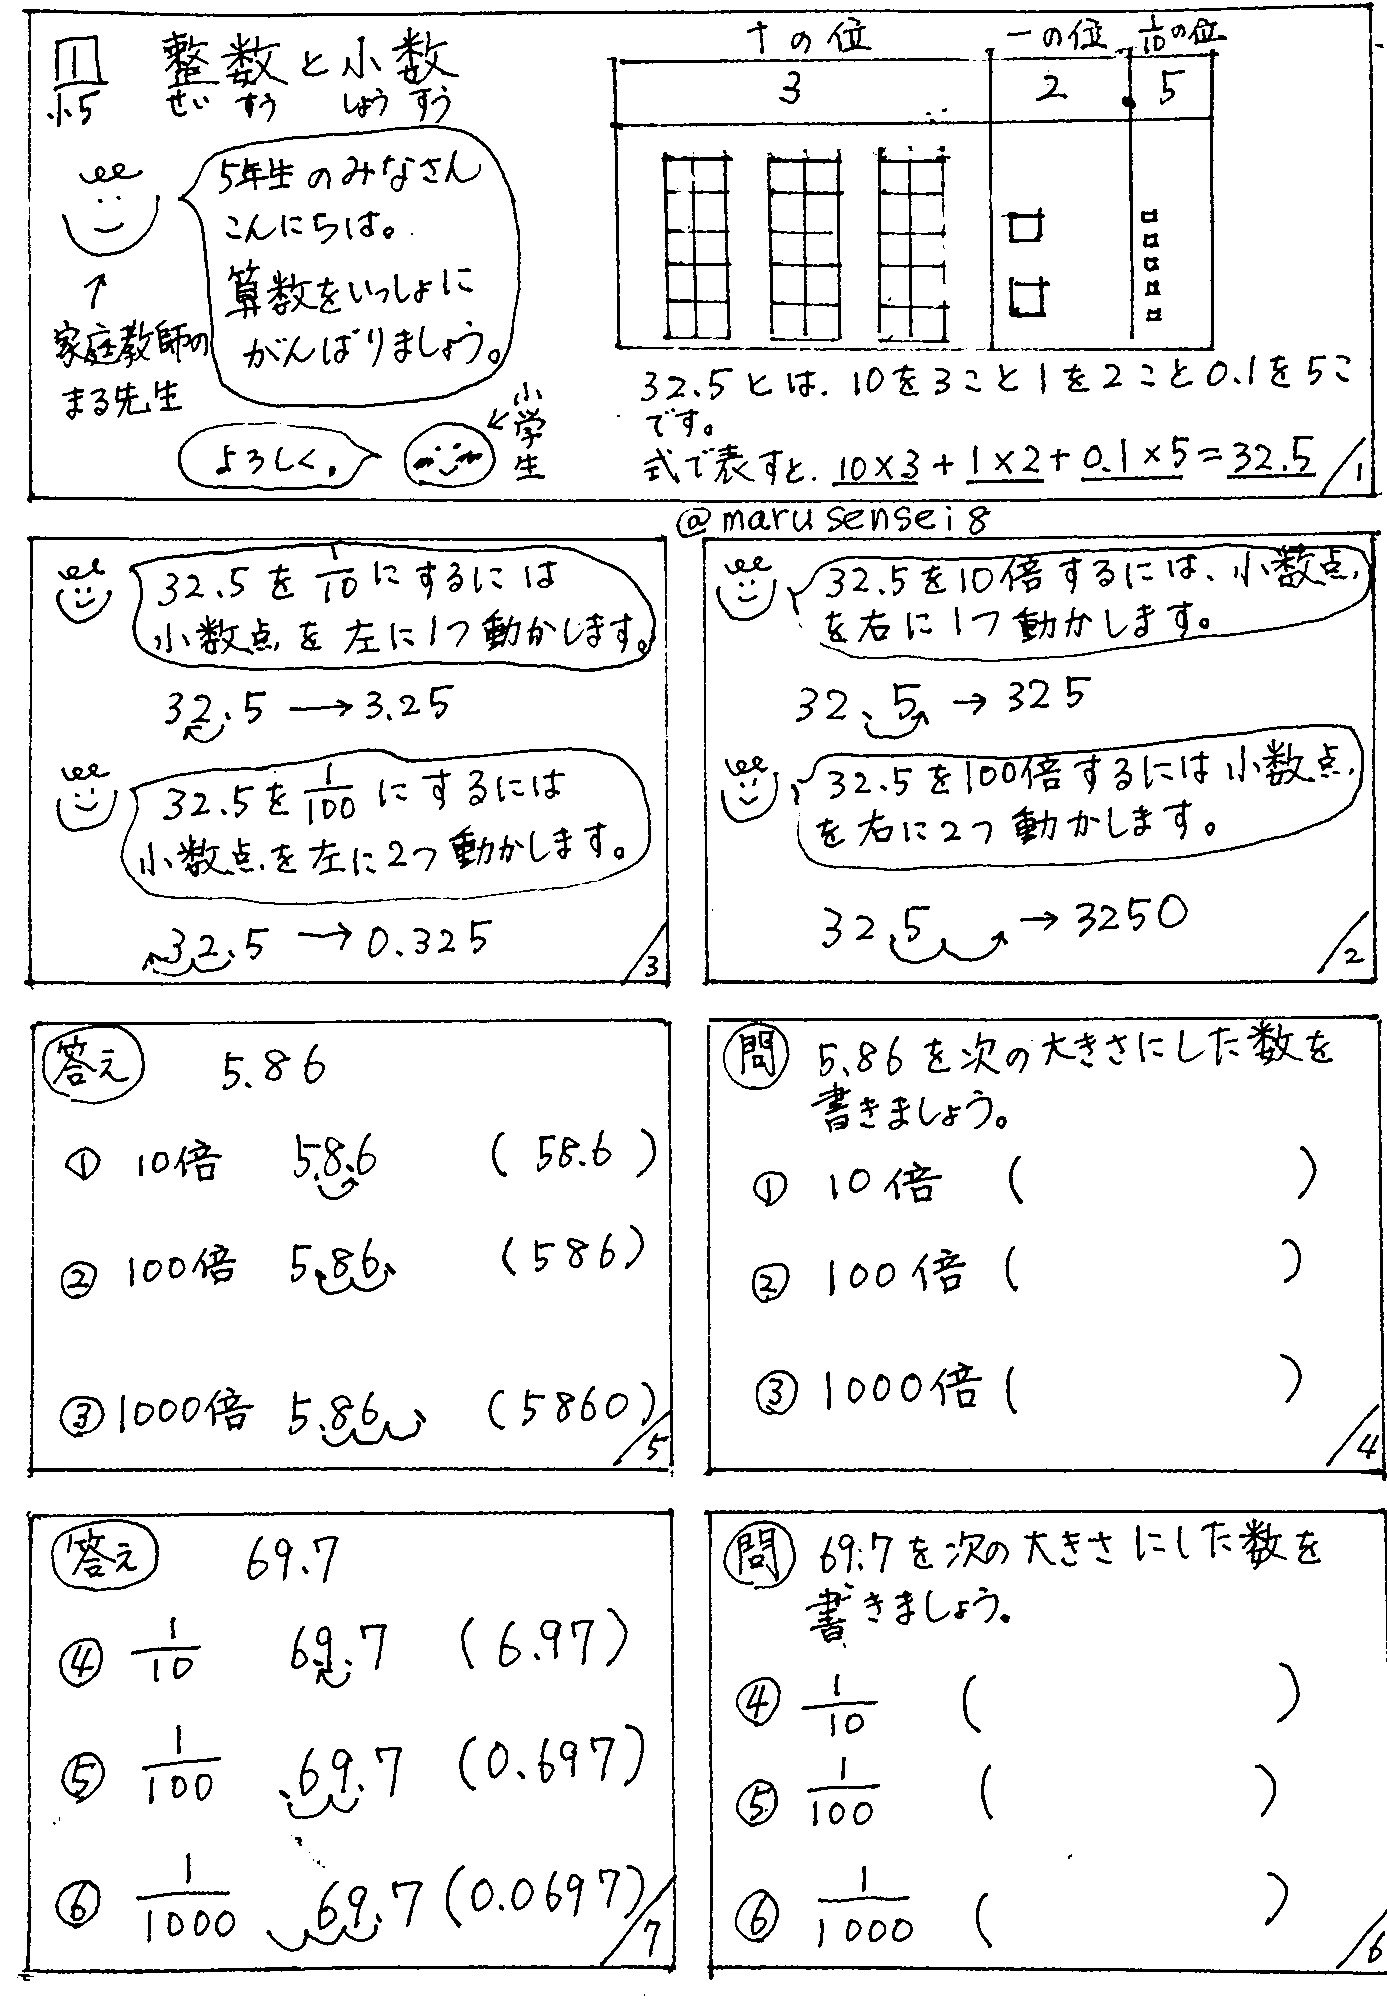 1
小5
整数と小数
せいすう しょうすう
5年生のみなさん
こんにちは。
算数をいっしょに
がんばりましょう。
↑
家庭教師の
まる先生
よろしく。
←小学生
十の位 一の位 1/10の位
3 2 . 5
32.5とは、10を3こと1を2こと0.1を5こ
です。
式で表すと、10×3+1×2+0.1×5=32.5
/1
@marusensei8
32.5を10倍するには、小数点
を右に1つ動かします。
32.5→325
32.5を100倍するには小数点
を右に2つ動かします。
32.5→3250
/2
32.5を1/10にするには
小数点を左に1つ動かします。
32.5→3.25
32.5を1/100にするには
小数点を左に2つ動かします。
32.5→0.325
/3
問 5.86を次の大きさにした数を
書きましょう。
① 10倍 ( )
② 100倍 ( )
③ 1000倍 ( )
/4
答え 5.86
① 10倍 5.8.6 (58.6)
② 100倍 5.86. (586)
③ 1000倍 5.86 (5860)
/5
問 69.7を次の大きさにした数を
書きましょう。
④ 1/10 ( )
⑤ 1/100 ( )
⑥ 1/1000 ( )
/6
答え 69.7
④ 1/10 69.7 (6.97)
⑤ 1/100 .69.7 (0.697)
⑥ 1/1000 69.7 (0.0697)
/7